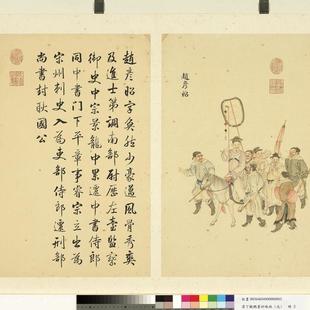 趙彥昭
趙彥昭字奐然少豪邁風骨秀爽
及進士第調南部尉歷左臺監察
御史中宗景龍中累遷中書侍郎
同中書門下平章事睿宗立出為
宋州刺史入為吏部侍郎遷刑部
尚書封耿國公